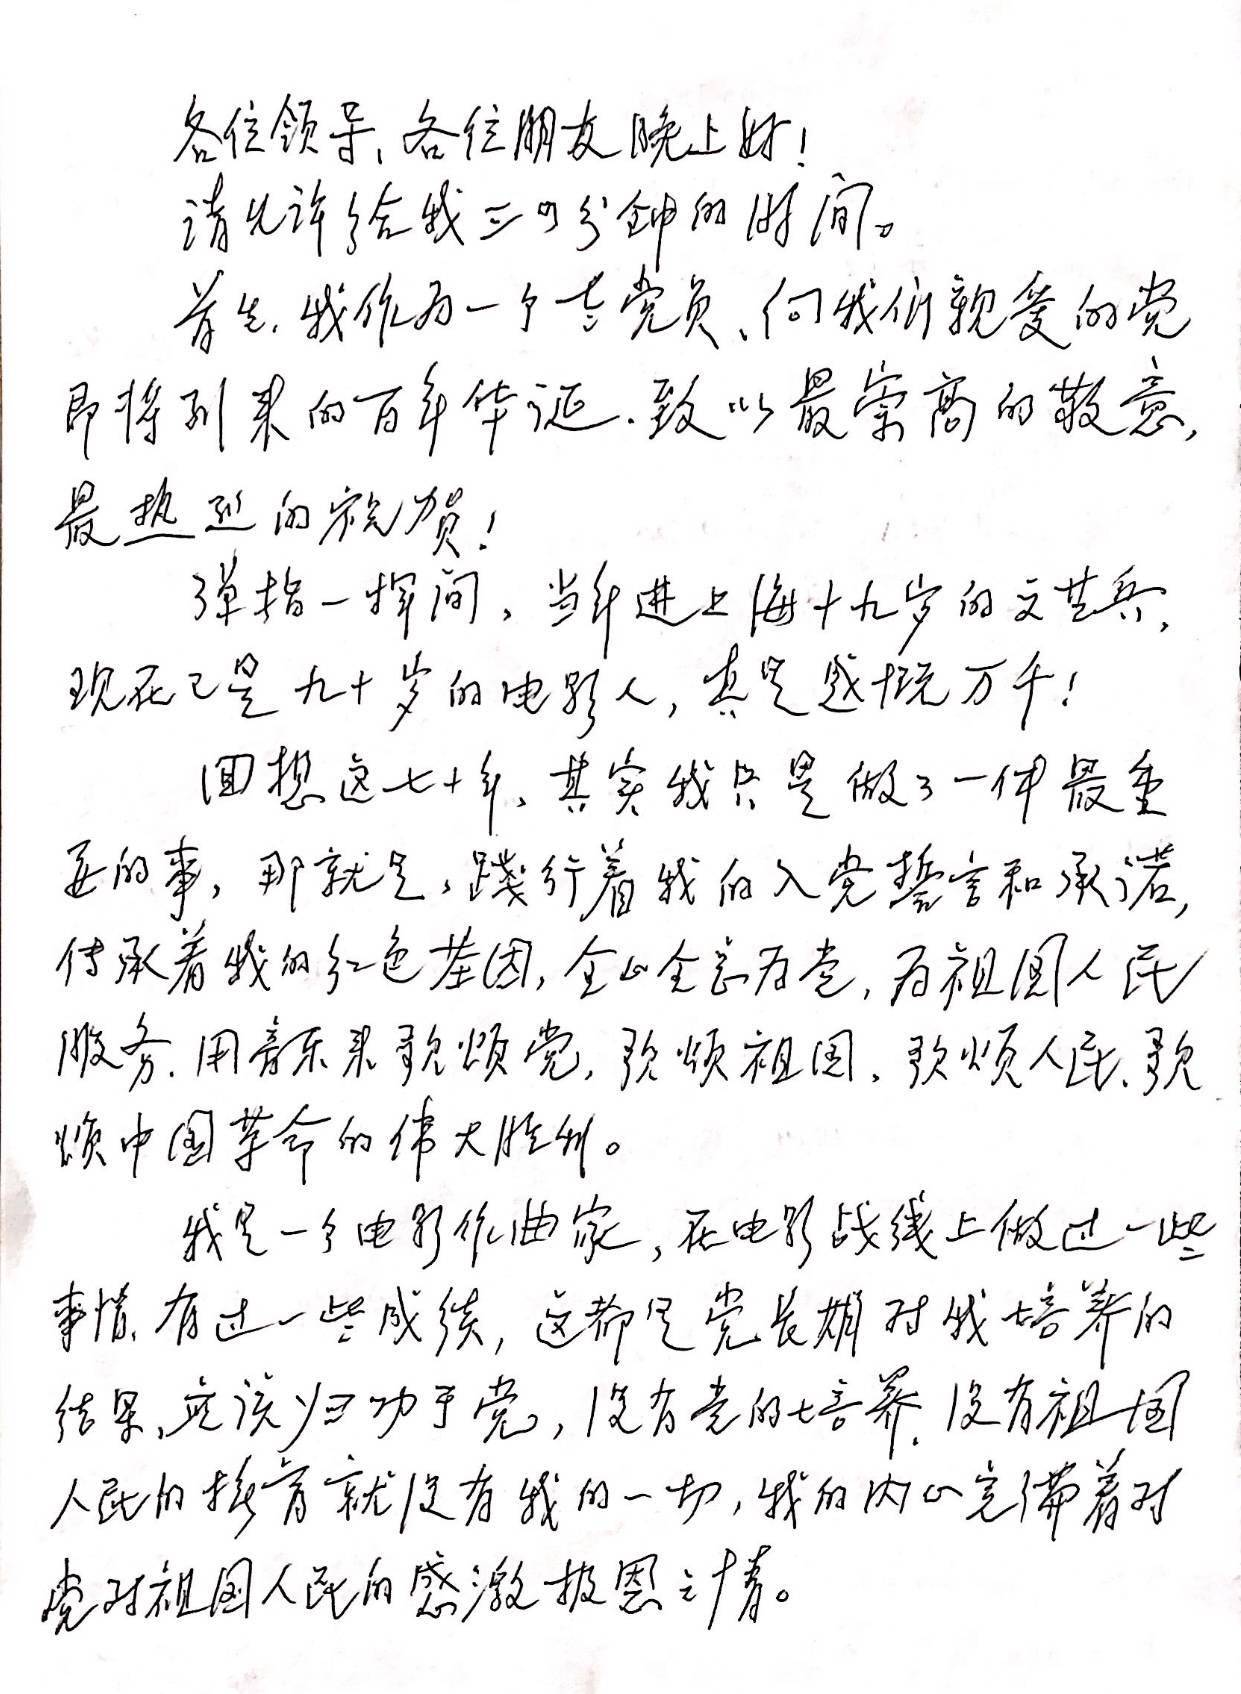 各位领导、各位朋友晚上好！
请允许给我三四分钟的时间。
首先，我作为一个老党员、向我们亲爱的党
即将到来的百年华诞．致以最崇高的敬意，
最热烈的祝贺！
弹指一挥间，当年进上海十九岁的文艺兵，
现在已是九十岁的电影人，真是感慨万千！
回想这七十年，其实我只是做了一件最重
要的事，那就是，践行着我的入党誓言和承诺，
传承着我的红色基因，全心全意为党，为祖国人民
服务．用音乐来歌颂党，歌颂祖国，歌颂人民、歌
颂中国革命的伟大胜利。
我是一个电影作曲家，在电影战线上做过一些
事情、有过一些成绩，这都是党长期对我培养的
结果，应该归功于党，没有党的培养，没有祖国
人民的抚育就没有我的一切，我的内心充满着对
党对祖国人民的感激报恩之情。